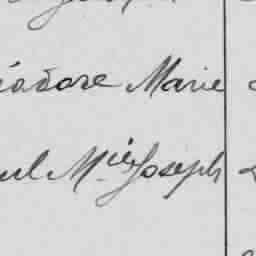 éodore Marie
ul M.ie Joseph